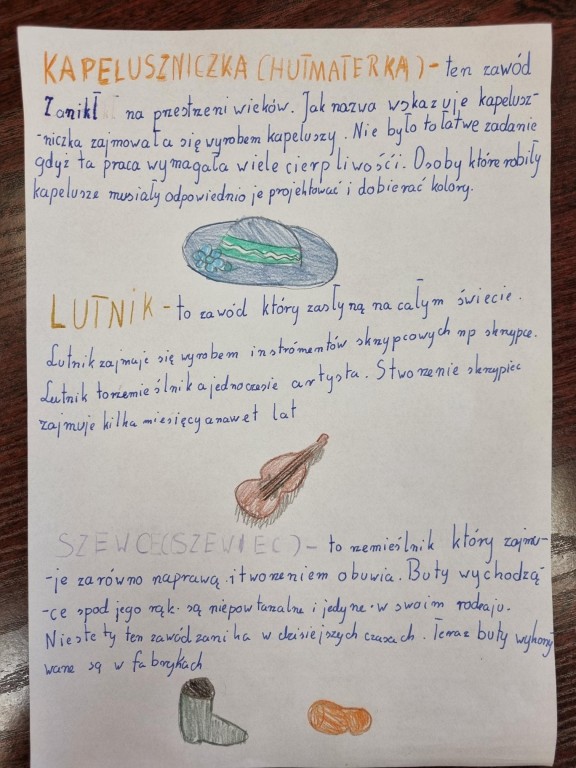 KAPELUSZNICZKA (HUTMATERKA) - ten zawód
Zanikł na przestrzeni wieków. Jak nazwa wskazuje kapelusz-
-niczka zajmowała się wyrobem kapeluszy. Nie było to łatwe zadanie
gdyż ta praca wymagała wiele cierpliwośći. Osoby które robiły
kapelusze musiały odpowiednio je projektować i dobierać kolory.
LUTNIK - to zawód który zasłyną na całym świecie.
Lutnik zajmuje się wyrobem instrómentów skrzypcowych np skrzypce.
Lutnik to rzemieślnik a jednoczesie artysta. Stworzenie skrzypiec
zajmuje kilka miesięcy a nawet lat
SZEWC (SZEWIEC) - to rzemieślnik który zajmu-
-je zarówno naprawą i tworzeniem obuwia. Buty wychodzą-
-ce spod jego rąk są niepowtarzalne i jedyne w swoim rodzaju.
Niestety ten zawód zanika w dzisiejszych czasach. Teraz buty wykony
wane są w fabrykach